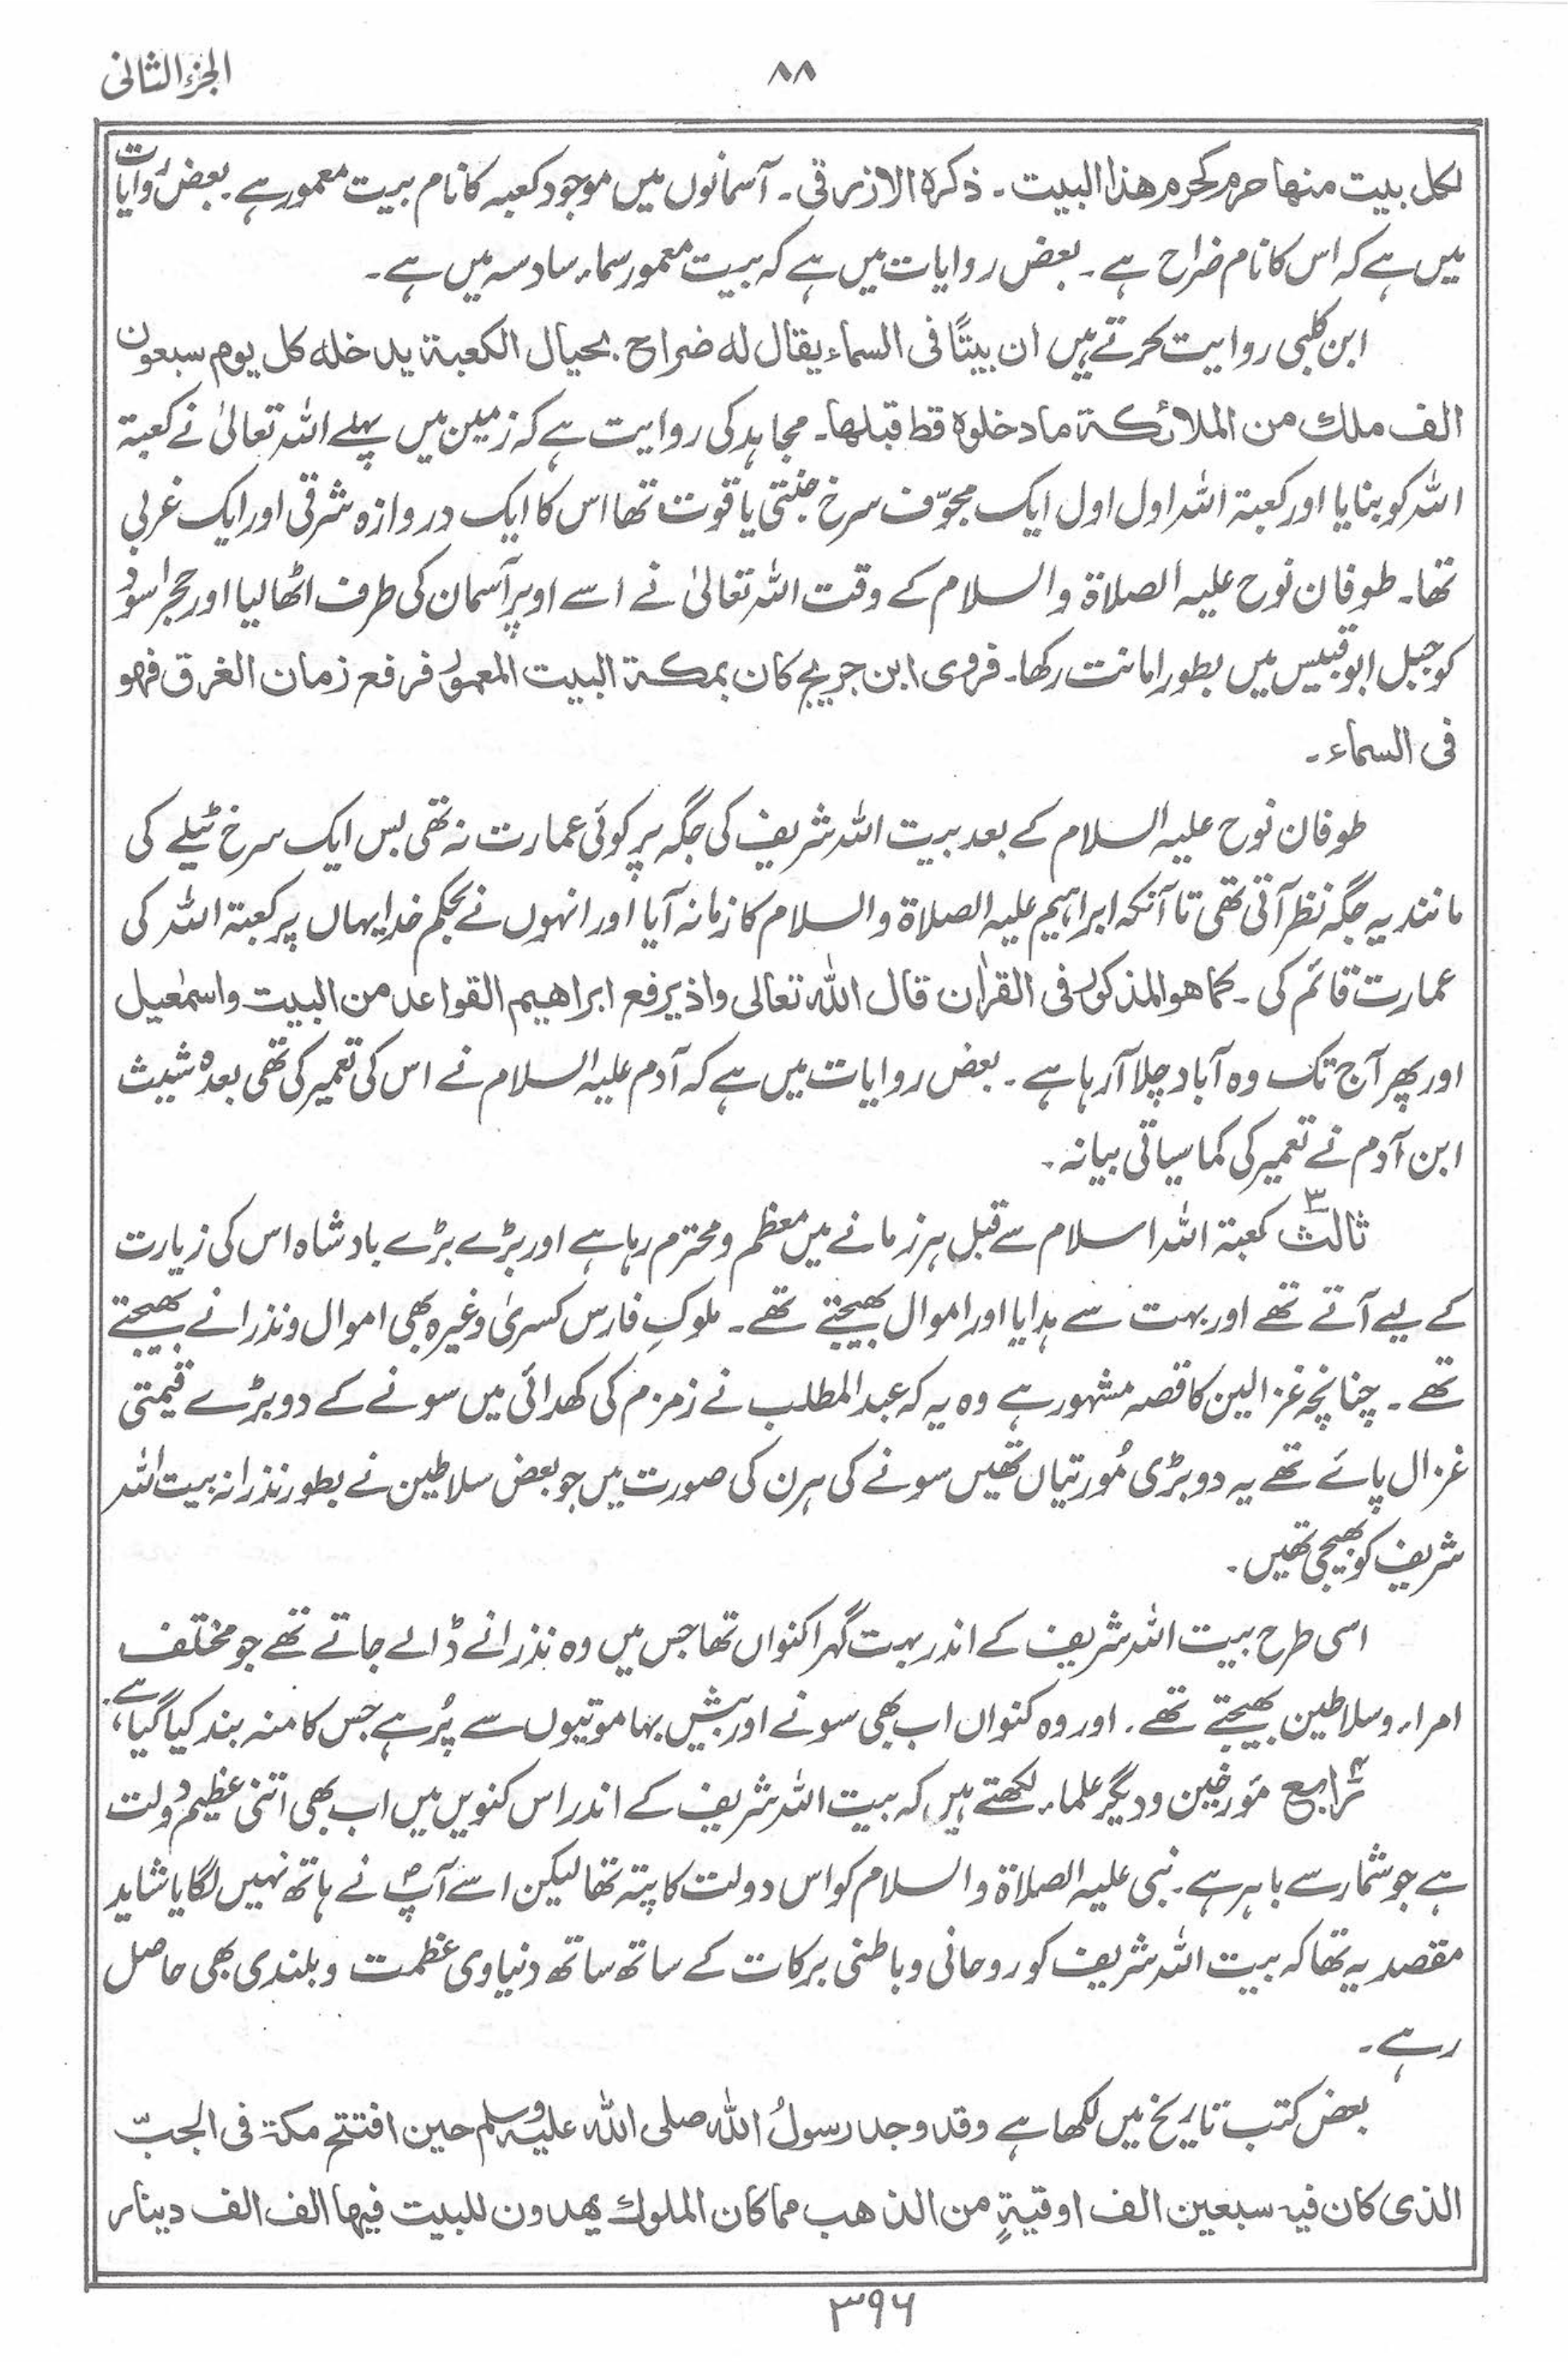 الجزء الثانی
۸۸
لکل بیت منھا حرم کحرم ھذا البیت ۔ ذکرہ الازرقی ۔ آسمانوں میں موجود کعبہ کا نام بیت معمور ہے۔ بعض روایات
میں ہے کہ اس کا نام ضراح ہے ۔ بعض روایات میں ہے کہ بیت معمور سماء سادسہ میں ہے۔
ابن کلبی روایت کرتے ہیں ان بیتًا فی السماء یقال لہ ضراح۔ بحیال الکعبۃ یدخلہ کل یوم سبعون
الف ملك من الملائکۃ ما دخلوہ قط قبلھا۔ مجاہد کی روایت ہے کہ زمین میں پہلے اللہ تعالیٰ نے کعبۃ
اللہ کو بنایا اور کعبۃ اللہ اول اول ایک مجوّف سرخ جنتی یاقوت تھا اس کا ایک دروازہ شرقی اور ایک غربی
تھا۔ طوفان نوح علیہ الصلاۃ والسلام کے وقت اللہ تعالیٰ نے اسے اوپر آسمان کی طرف اٹھا لیا اور حجر اسود
کو جبل ابوقبیس میں بطور امانت رکھا۔ فروی ابن جریج کان بمکۃ البیت المعمور فرفع زمان الغرق فھو
فی السماء ۔
طوفان نوح علیہ السلام کے بعد بیت اللہ شریف کی جگہ پر کوئی عمارت نہ تھی بس ایک سرخ ٹیلے کی
مانند یہ جگہ نظر آتی تھی تا آنکہ ابراہیم علیہ الصلاۃ والسلام کا زمانہ آیا اور انہوں نے بحکم خدا یہاں پر کعبۃ اللہ کی
عمارت قائم کی ۔ کما ھو المذکور فی القرٰان قال اللہ تعالی واذ یرفع ابراھیم القواعد من البیت واسمٰعیل
اور پھر آج تک وہ آباد چلا آرہا ہے ۔ بعض روایات میں ہے کہ آدم علیہ السلام نے اس کی تعمیر کی تھی بعدہٗ شیث
ابن آدم نے تعمیر کی کما سیاتی بیانہ ۔
ثالث۳ کعبۃ اللہ اسلام سے قبل ہر زمانے میں معظم و محترم رہا ہے اور بڑے بڑے بادشاہ اس کی زیارت
کے لیے آتے تھے اور بہت سے ہدایا اور اموال بھیجتے تھے ۔ ملوکِ فارس کسریٰ وغیرہ بھی اموال و نذرانے بھیجتے
تھے ۔ چنانچہ غزالین کا قصہ مشہور ہے وہ یہ کہ عبدالمطلب نے زمزم کی کھدائی میں سونے کے دو بڑے قیمتی
غزال پائے تھے یہ دو بڑی مُورتیاں تھیں سونے کی ہرن کی صورت میں جو بعض سلاطین نے بطور نذرانہ بیت اللہ
شریف کو بھیجی تھیں ۔
اسی طرح بیت اللہ شریف کے اندر بہت گہرا کنواں تھا جس میں وہ نذرانے ڈالے جاتے تھے جو مختلف
امراء و سلاطین بھیجتے تھے ۔ اور وہ کنواں اب بھی سونے اور بیش بہا موتیوں سے پُر ہے جس کا منہ بند کیا گیا ہے،
رابع۴ مؤرخین و دیگر علماء لکھتے ہیں کہ بیت اللہ شریف کے اندر اس کنویں میں اب بھی اتنی عظیم دولت
ہے جو شمار سے باہر ہے ۔ نبی علیہ الصلاۃ والسلام کو اس دولت کا پتہ تھا لیکن اسے آپؐ نے ہاتھ نہیں لگایا شاید
مقصد یہ تھا کہ بیت اللہ شریف کو روحانی و باطنی برکات کے ساتھ ساتھ دنیاوی عظمت و بلندی بھی حاصل
رہے ۔
بعض کتب تاریخ میں لکھا ہے وقد وجد رسولُ اللہ صلی اللہ علیہ وسلم حین افتتح مکۃ فی الجبّ
الذی کان فیہ سبعین الف اوقیۃٍ من الذھب مما کان الملوك یھدون للبیت فیھا الف الف دینار
۳۹۶